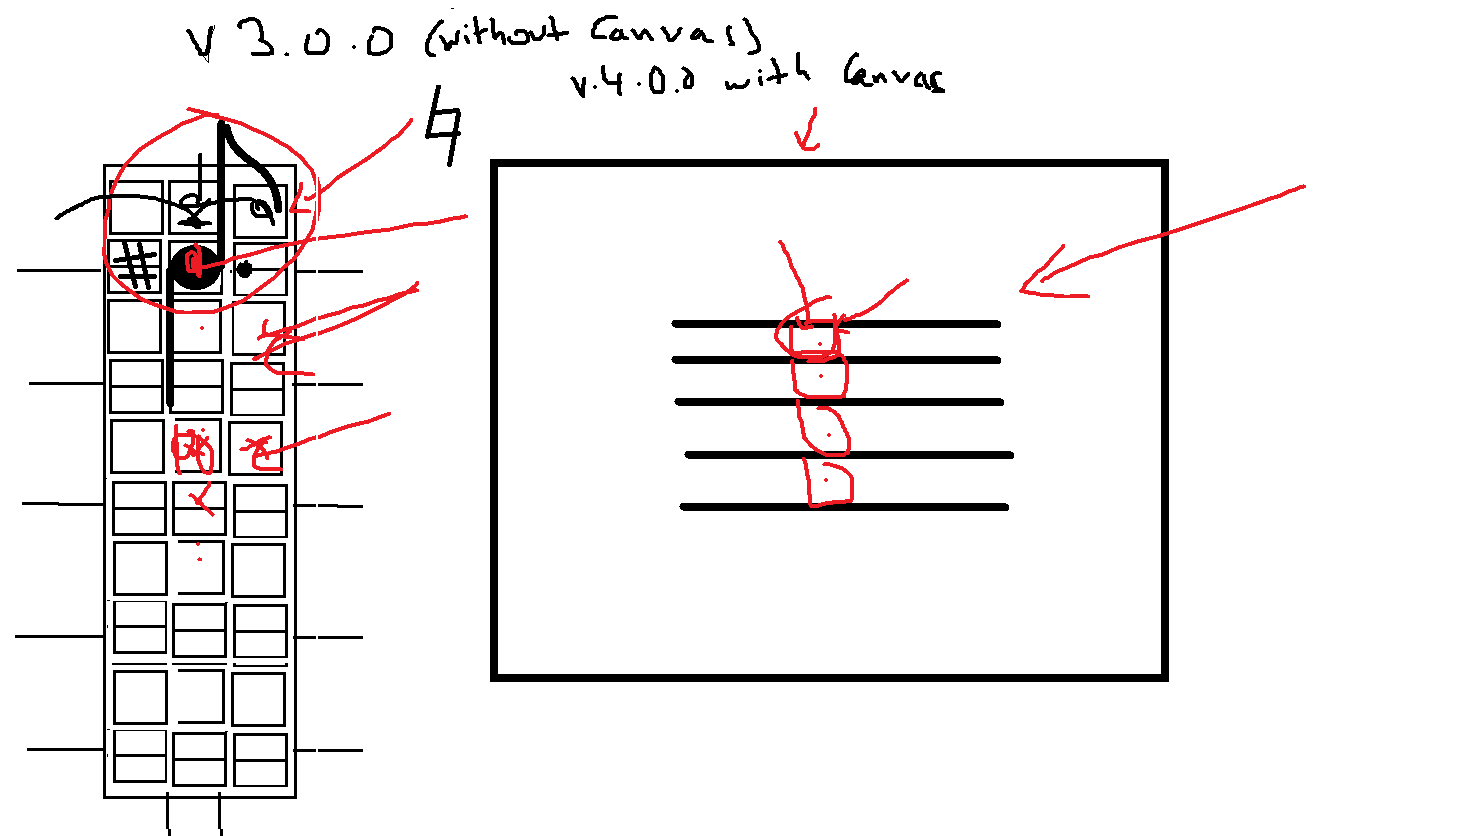 v 3.0.0 (without Canvas)
v.4.0.0 with Canvas